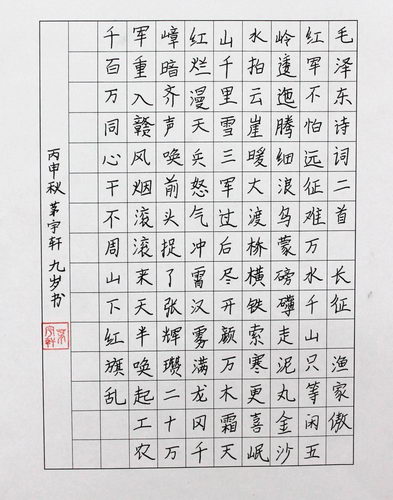 毛泽东诗词二首 长征 渔家傲
红军不怕远征难万水千山只等闲五
岭逶迤腾细浪乌蒙磅礴走泥丸金沙
水拍云崖暖大渡桥横铁索寒更喜岷
山千里雪三军过后尽开颜万木霜天
红烂漫天兵怒气冲霄汉雾满龙冈千
嶂暗齐声唤前头捉了张辉瓒二十万
军重入赣风烟滚滚来天半唤起工农
千百万同心干不周山下红旗乱
丙申秋 茅宇轩 九岁书